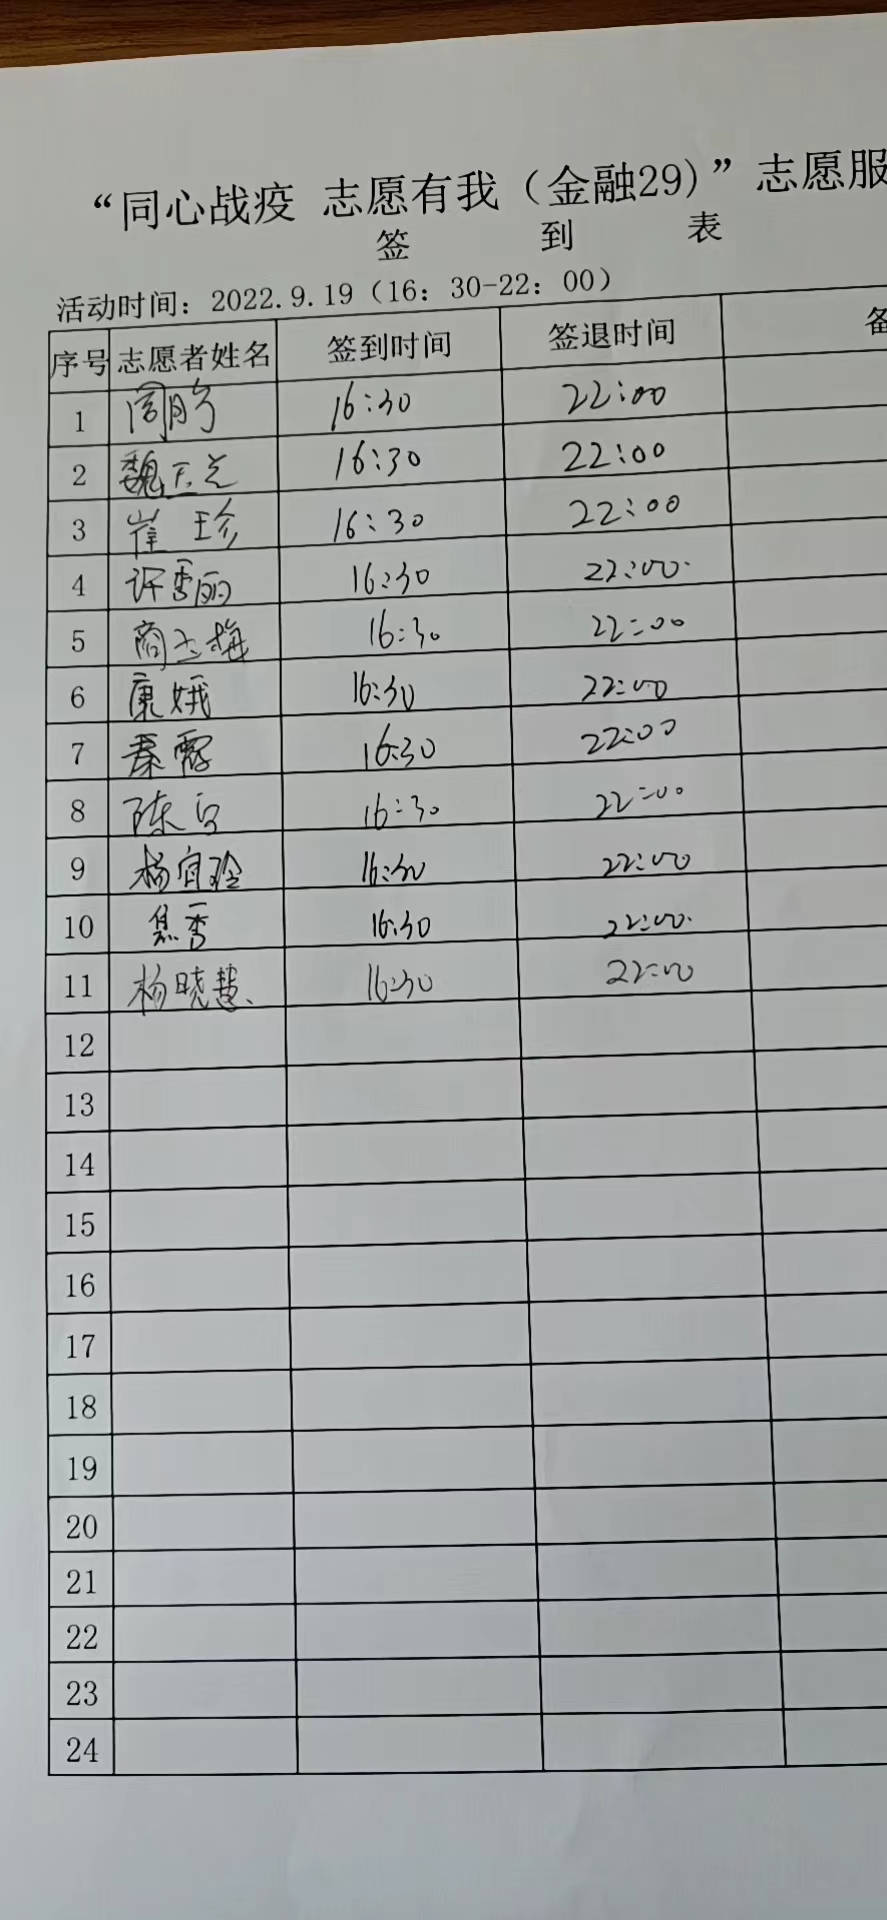 “同心战疫 志愿有我（金融29）”志愿服
签 到 表
活动时间：2022.9.19（16：30-22：00）
序号 志愿者姓名 签到时间 签退时间 备
1 16:30 22:00
2 魏玉兰 16:30 22:00
3 崔珍 16:30 22:00
4 许秀丽 16:30 22:00
5 商玉梅 16:30 22:00
6 康娥 16:30 22:00
7 秦霞 16:30 22:00
8 陈 16:30 22:00
9 杨宜玲 16:30 22:00
10 焦秀 16:30 22:00
11 杨晓慧 16:30 22:00
12
13
14
15
16
17
18
19
20
21
22
23
24